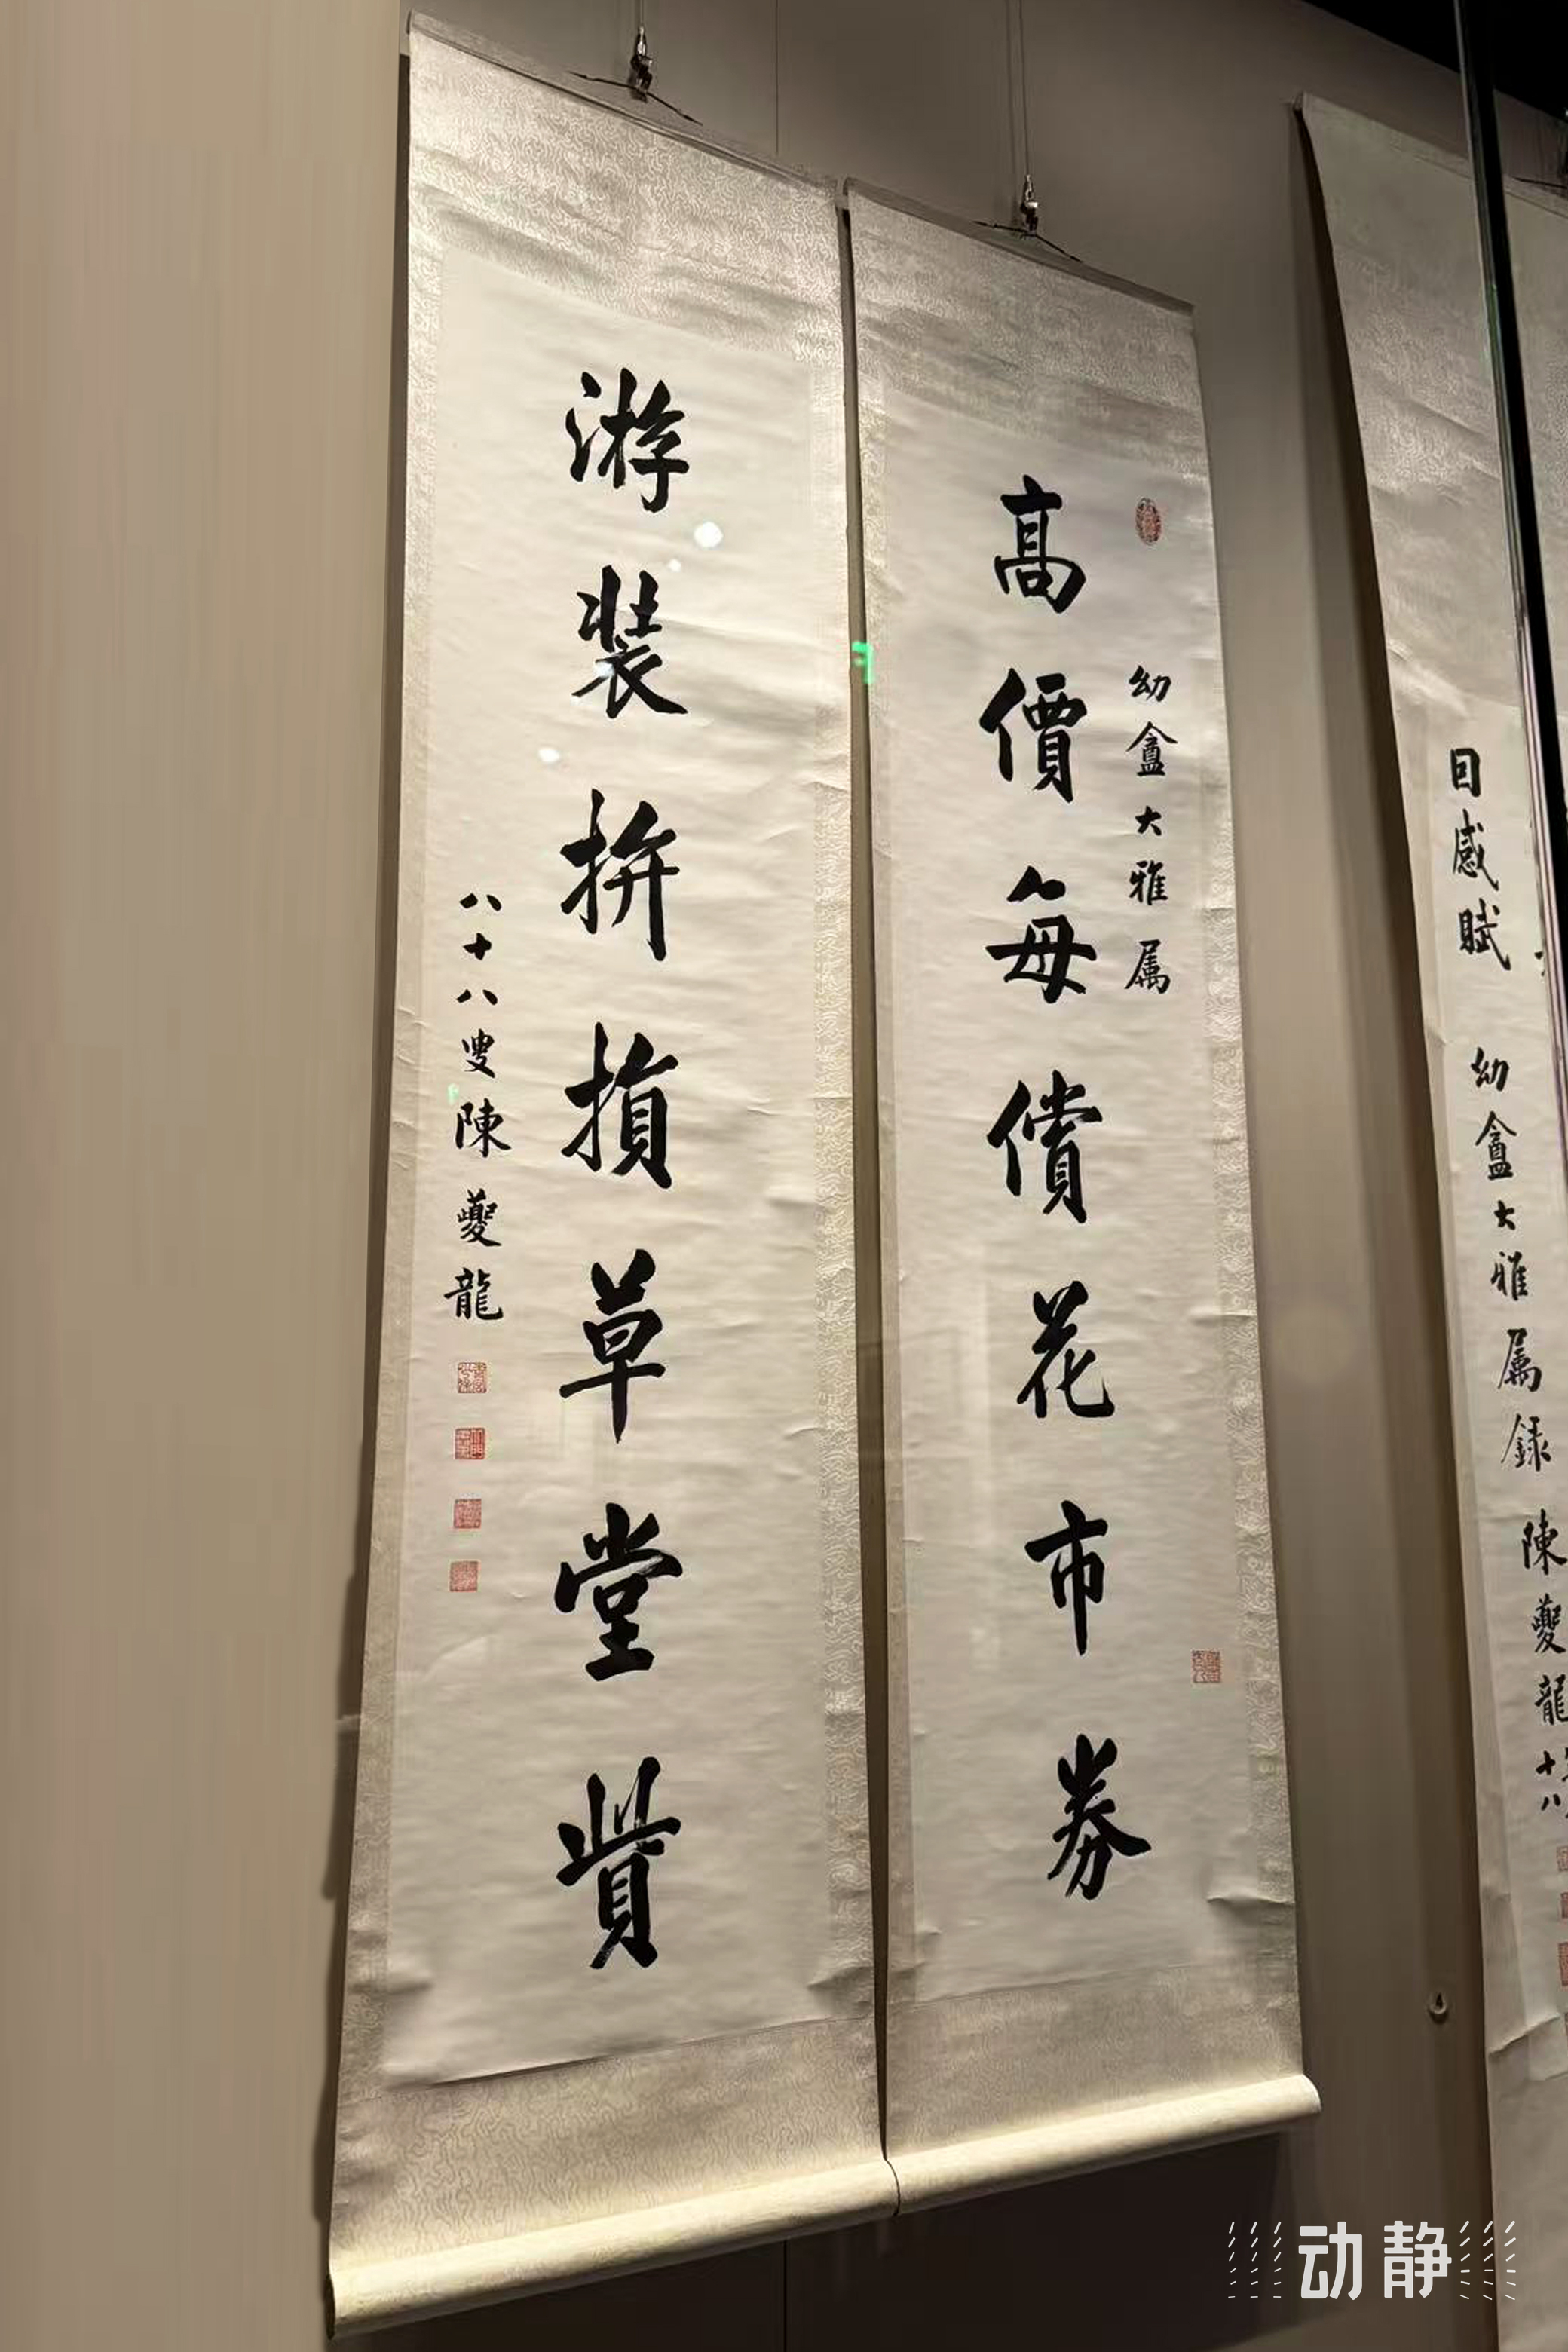 高價每償花市券
幼盦大雅属
游裝拚損草堂貲
八十八叟陳夔龍
日感賦 幼盦大雅属錄 陳夔龍
十八
动静